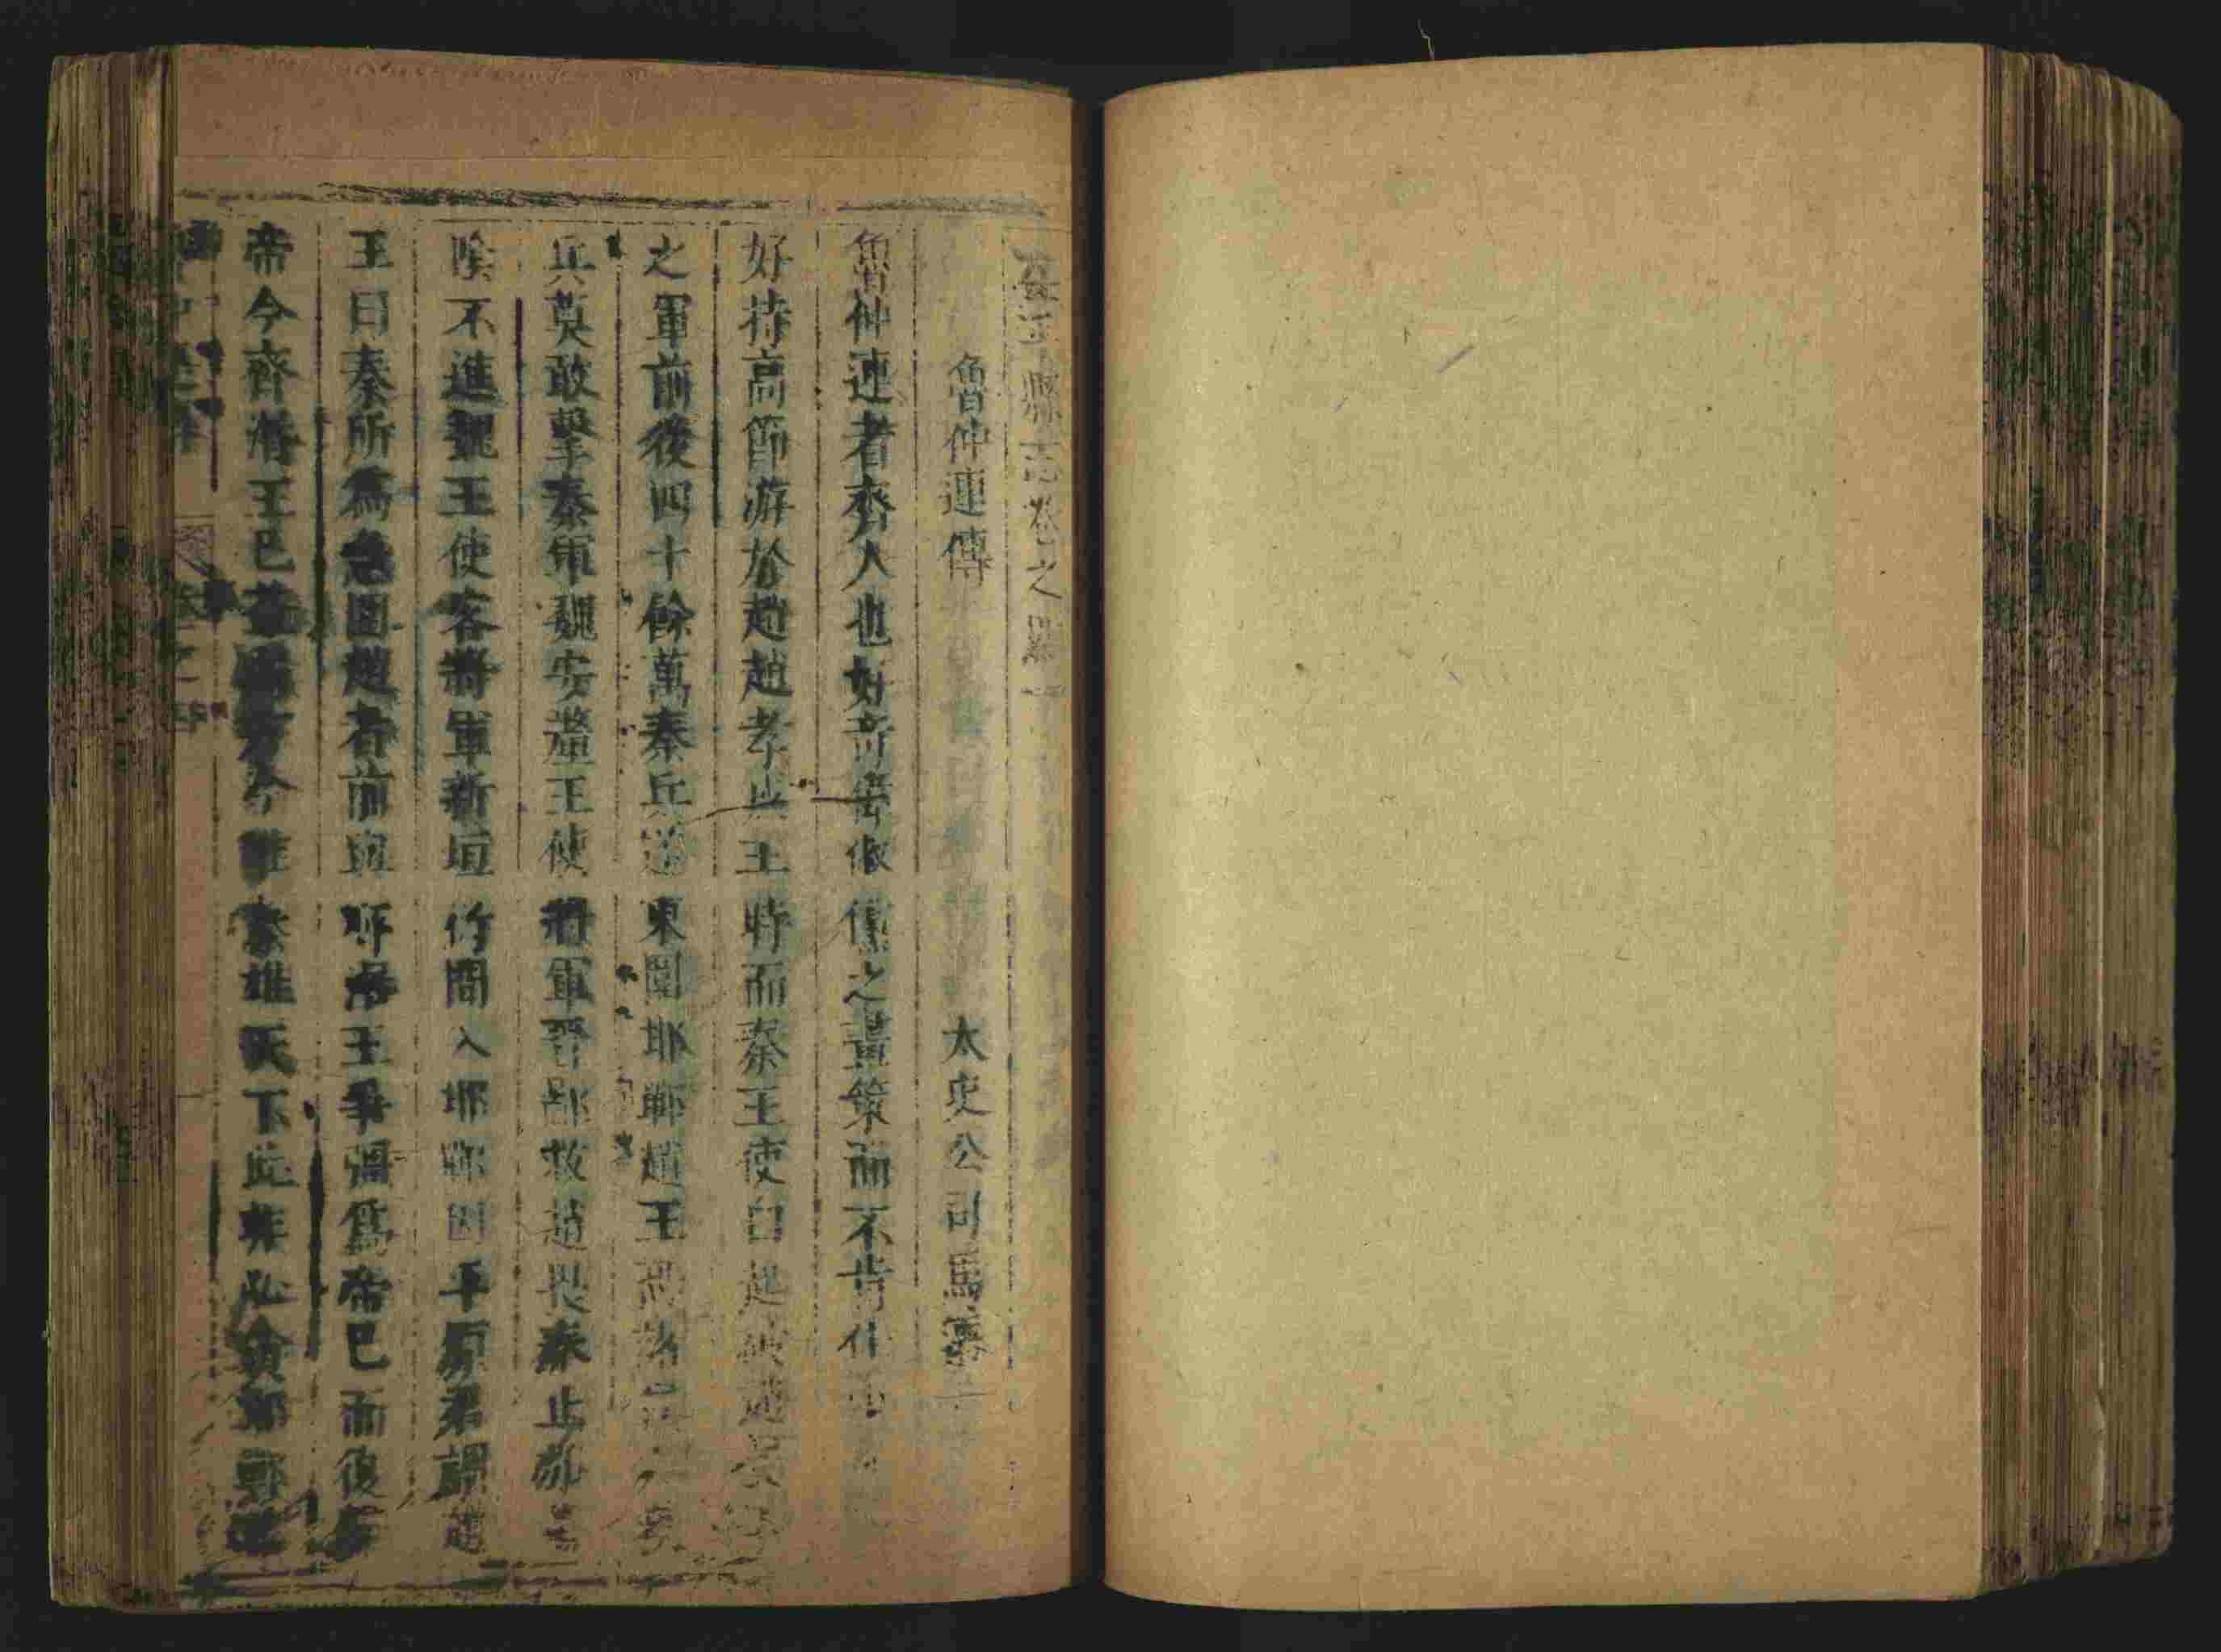 縣志卷之
魯仲連傳 太史公司馬遷
魯仲連者齊人也好奇偉俶儻之畫策而不肯仕
好持高節游於趙趙孝成王時而秦王使白起破趙長平
之軍前後四十餘萬秦兵遂東圍邯鄲趙王恐諸
兵莫敢擊秦軍魏安釐王使將軍晉鄙救趙畏秦止於
陰不進魏王使客將軍新垣衍間入邯鄲因平原君謂趙
王曰秦所爲急圍趙者前與齊湣王爭强爲帝已而復
帝今齊湣王已益弱方今唯秦雄天下此非必貪邯鄲